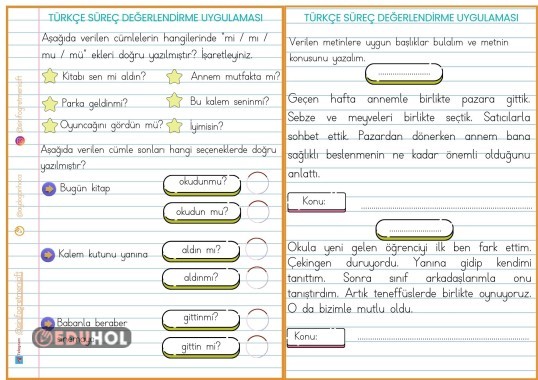 TÜRKÇE SÜREÇ DEĞERLENDİRME UYGULAMASI
Aşağıda verilen cümlelerin hangilerinde "mi / mı /
mu / mü" ekleri doğru yazılmıştır? İşaretleyiniz.
Kitabı sen mi aldın?
Annem mutfakta mı?
Parka geldinmi?
Bu kalem seninmi?
Oyuncağını gördün mü?
İyimisin?
Aşağıda verilen cümle sonları hangi seçeneklerde doğru
yazılmıştır?
Bugün kitap
okudunmu?
okudun mu?
Kalem kutunu yanına
aldın mı?
aldınmı?
Babanla beraber
sinemaya
gittinmi?
gittin mi?
EDUHOL
TÜRKÇE SÜREÇ DEĞERLENDİRME UYGULAMASI
Verilen metinlere uygun başlıklar bulalım ve metnin
konusunu yazalım.
Geçen hafta annemle birlikte pazara gittik.
Sebze ve meyveleri birlikte seçtik. Satıcılarla
sohbet ettik. Pazardan dönerken annem bana
sağlıklı beslenmenin ne kadar önemli olduğunu
anlattı.
Konu:
Okula yeni gelen öğrenciyi ilk ben fark ettim.
Çekingen duruyordu. Yanına gidip kendimi
tanıttım. Sonra sınıf arkadaşlarımla onu
tanıştırdım. Artık teneffüslerde birlikte oynuyoruz.
O da bizimle mutlu oldu.
Konu: